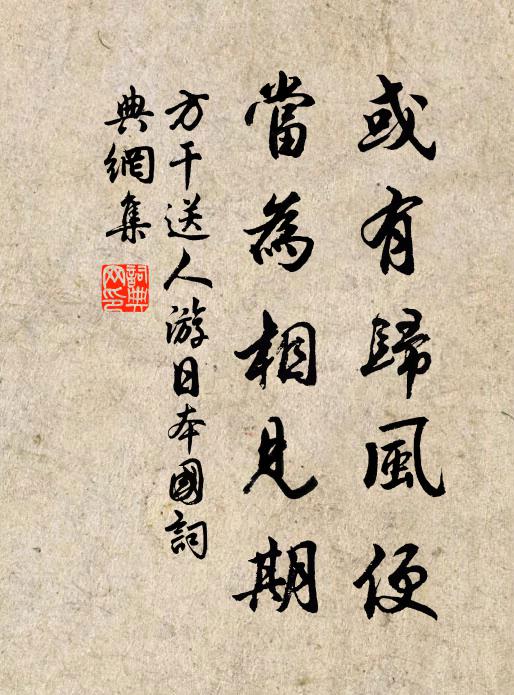 或有歸風便
當為相見期
方干送人游日本國詞
典網集
詞典網印